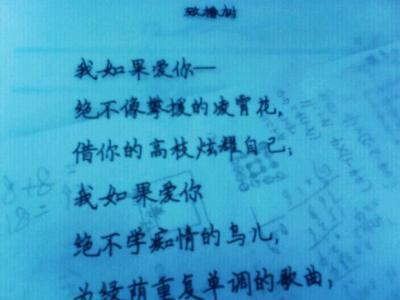 致橡树
我如果爱你—
绝不像攀援的凌霄花,
借你的高枝炫耀自己;
我如果爱你
绝不学痴情的鸟儿,
为绿荫重复单调的歌曲;
8+8
18=